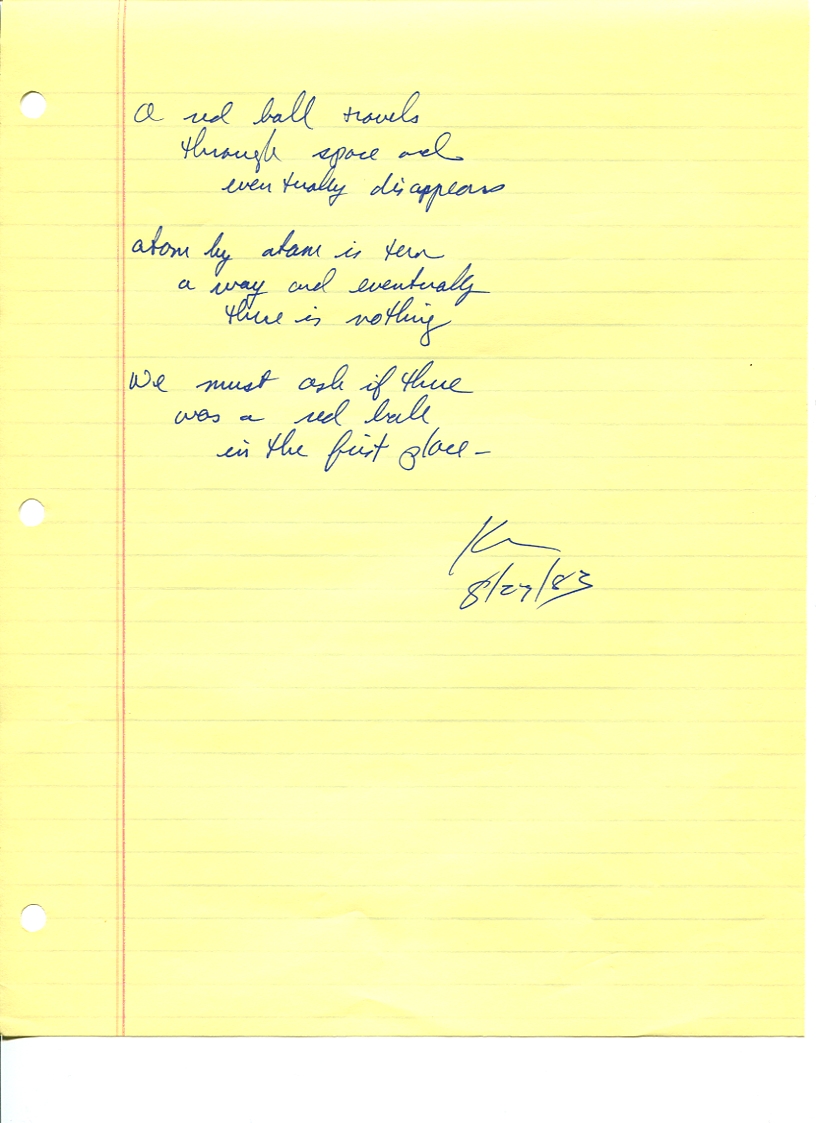 a red ball travels
through space and
eventually disappears
atom by atom is torn
a way and eventually
there is nothing
We must ask if there
was a red ball
in the first place–
8/27/83